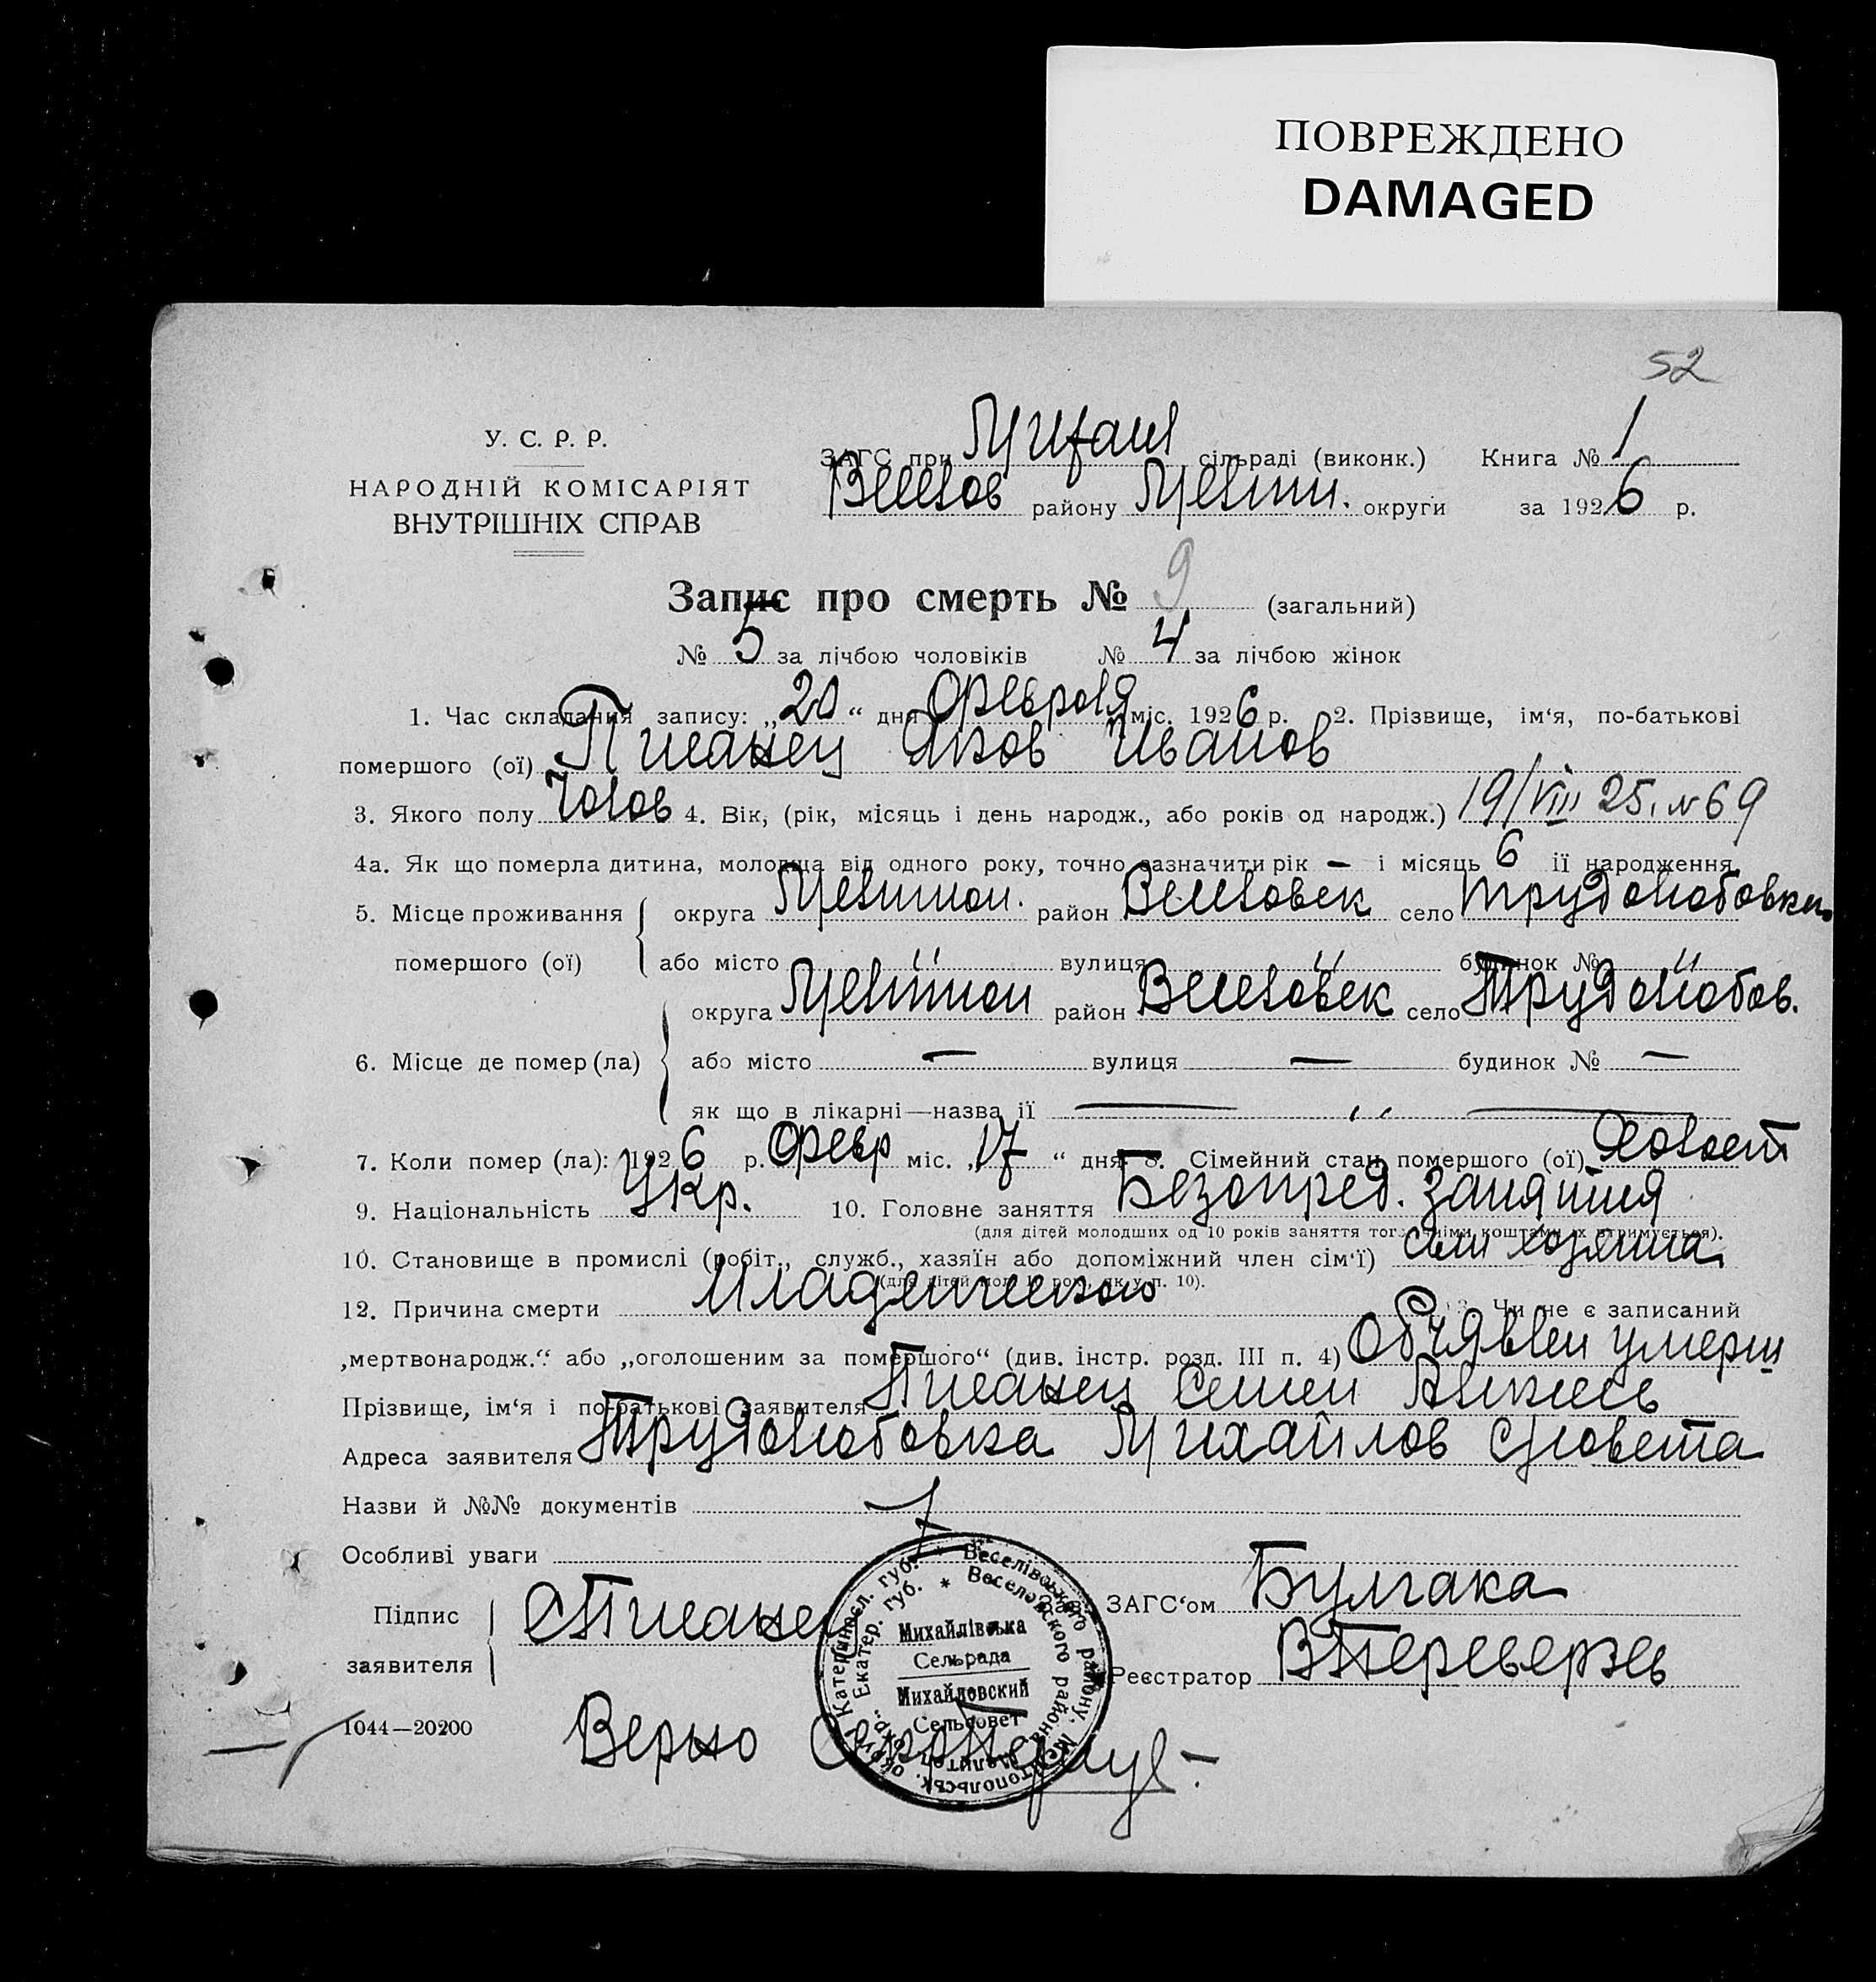 ПОВРЕЖДЕНО
DAMAGED
52
У. С. Р. Р.
НАРОДНІЙ КОМІСАРІЯТ
ВНУТРІШНІХ СПРАВ
ЗАГС при сільраді (виконк.) Книга № 1
району округи за 1926 р.
Запис про смерть № 9 (загальний)
№ 5 за лічбою чоловіків № 4 за лічбою жінок
1. Час складання запису: „20“ дня Февраля міс. 1926 р. 2. Прізвище, ім‘я, по-батькові
помершого (ої) Писанец Яков Иванов
3. Якого полу 4. Вік, (рік, місяць і день народж., або років од народж.) 19/VIII 25. № 69
4а. Як що померла дитина, молодша від одного року, точно зазначити рік — і місяць 6 ії народження
5. Місце проживання округа район село Трудолюбовка
помершого (ої) або місто " вулиця " будинок № "
округа район село Трудолюбов.
6. Місце де помер (ла) або місто — вулиця — будинок № —
як що в лікарні—назва ії — „ —
7. Коли помер (ла): 1926 р. Февр міс. „17“ дня 8. Сімейний стан помершого (ої) Холост
9. Національність Укр. 10. Головне заняття занятия
(для дітей молодших од 10 років заняття того, чиїми коштами їх втримується).
10. Становище в промислі (робіт., служб., хазяїн або допоміжний член сім‘ї) хозяина
12. Причина смерти Младенческая Чи не є записаний
„мертвонародж.“ або „оголошеним за помершого“ (див. інстр. розд. III п. 4) Объявлен умерш
Прізвище, ім‘я і по-батькові заявителя Писанец Семен
Адреса заявителя Трудолюбовка Михайлов с/совета
Назви й №№ документів
Особливі уваги
Підпис ЗАГС‘ом Булгака
заявителя С Писанец Реєстратор В Переверзев
1044—20200 Верно
Веселівського району. Мелітопольськ. округи Катериносл. губ.
Веселовского района Мелитоп. окр. Екатер. губ.
Михайлівська
Сельрада
Михайловский
Сельсовет